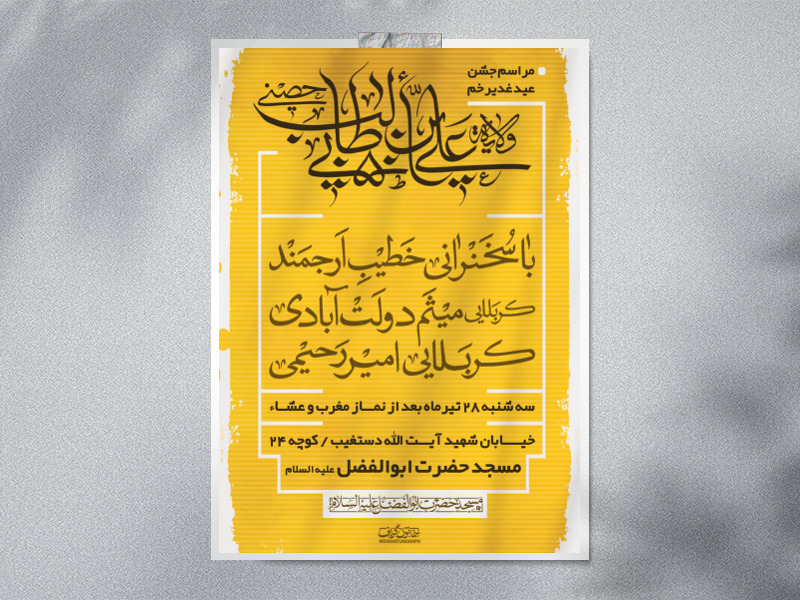 مراسم جشن
عید غدیر خم
ولایة علي بن أبي طالب حصني
با سُخَنْرانی خَطیْبِ اَرجمَنْد
کربلایی میْثَم دولَتْ آبادی
کربَلایی امیر رَحیْمی
سه شنبه ۲۸ تیر ماه بعد از نمـاز مغرب و عشـاء
خیـــابان شهید آیــت الله دستغیب / کوچه ۲۴
مسجد حضرت ابوالفضل علیه السلام
مسجد حضرت ابوالفضل علیه السلام